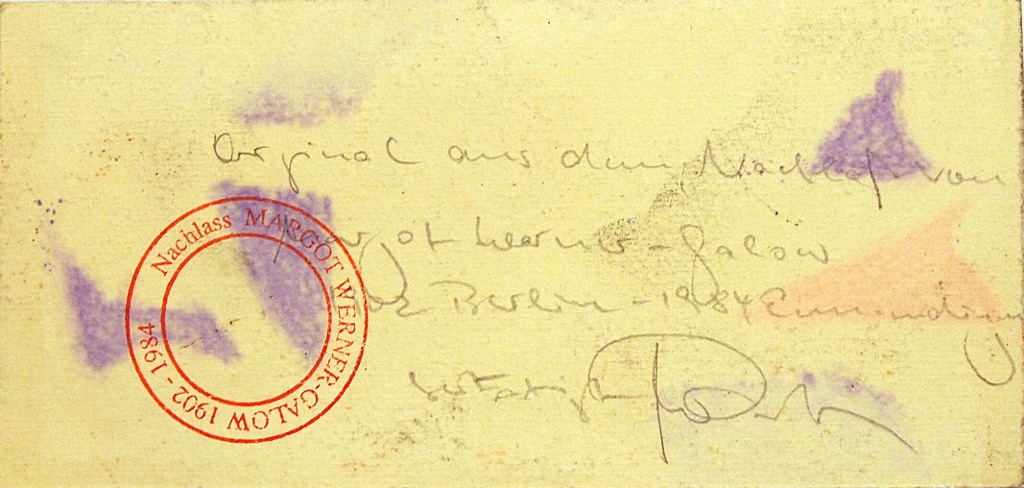 Original aus dem Nachlaß von
Margot Werner-Galow
1902 Berlin - 1984 Emmendingen
bestätigt
Nachlass MARGOT WERNER-GALOW 1902 - 1984